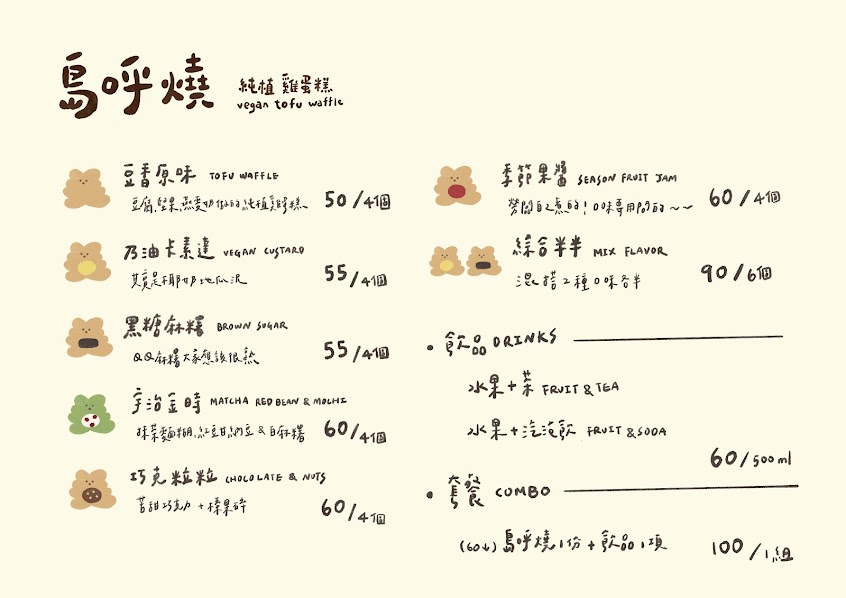 島呼燒 純植 雞蛋糕
vegan tofu waffle
豆香原味 TOFU WAFFLE
豆腐,堅果,燕麥奶做的純植雞蛋糕 50/4個
乃油卡素達 VEGAN CUSTARD
其實是椰奶地瓜泥 55/4個
黑糖麻糬 BROWN SUGAR
QQ麻糬大家應該很熟 55/4個
宇治金時 MATCHA RED BEAN & MOCHI
抹茶麵糊,紅豆甘納豆&白麻糬 60/4個
巧克粒粒 CHOCOLATE & NUTS
苦甜巧克力+榛果碎 60/4個
季節果醬 SEASON FRUIT JAM
勞闆自己煮的!口味專用問的~~ 60/4個
綜合半半 MIX FLAVOR
混搭2種口味各半 90/6個
• 飲品 DRINKS
水果+茶 FRUIT & TEA
水果+汽泡飲 FRUIT & SODA
60/500ml
• 套餐 COMBO
(60↓)島呼燒1份+飲品1項 100/1組